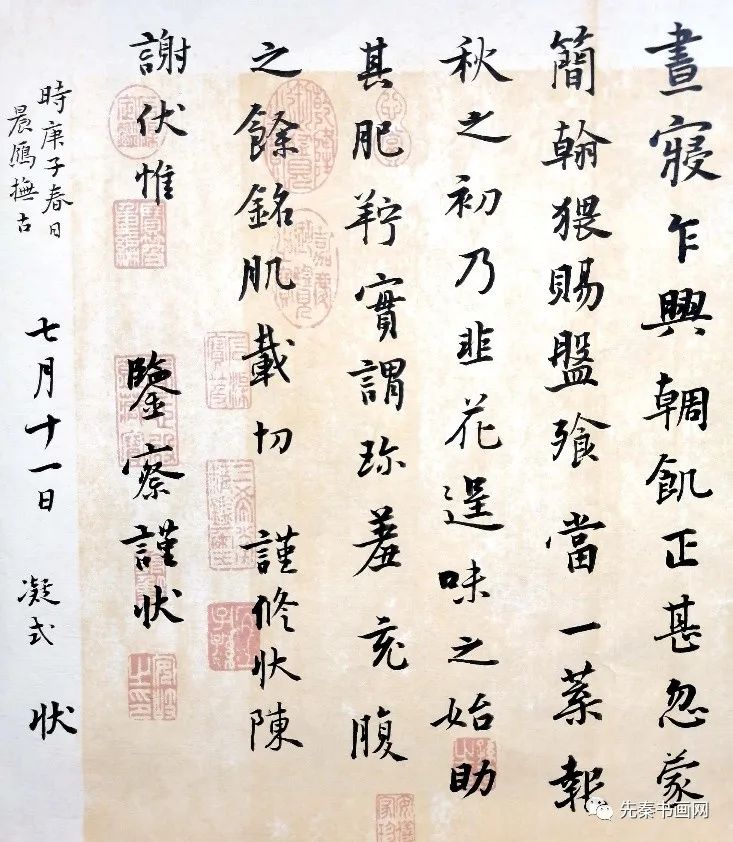 晝寢乍興輖飢正甚忽蒙
簡翰猥賜盤飧當一葉報
秋之初乃韭花逞味之始助
其肥羜實謂珎羞充腹
之餘銘肌載切 謹修狀陳
謝伏惟 鑒察謹狀
七月十一日 凝式 狀
時庚子春日
晨鴈撫古
先秦书画网